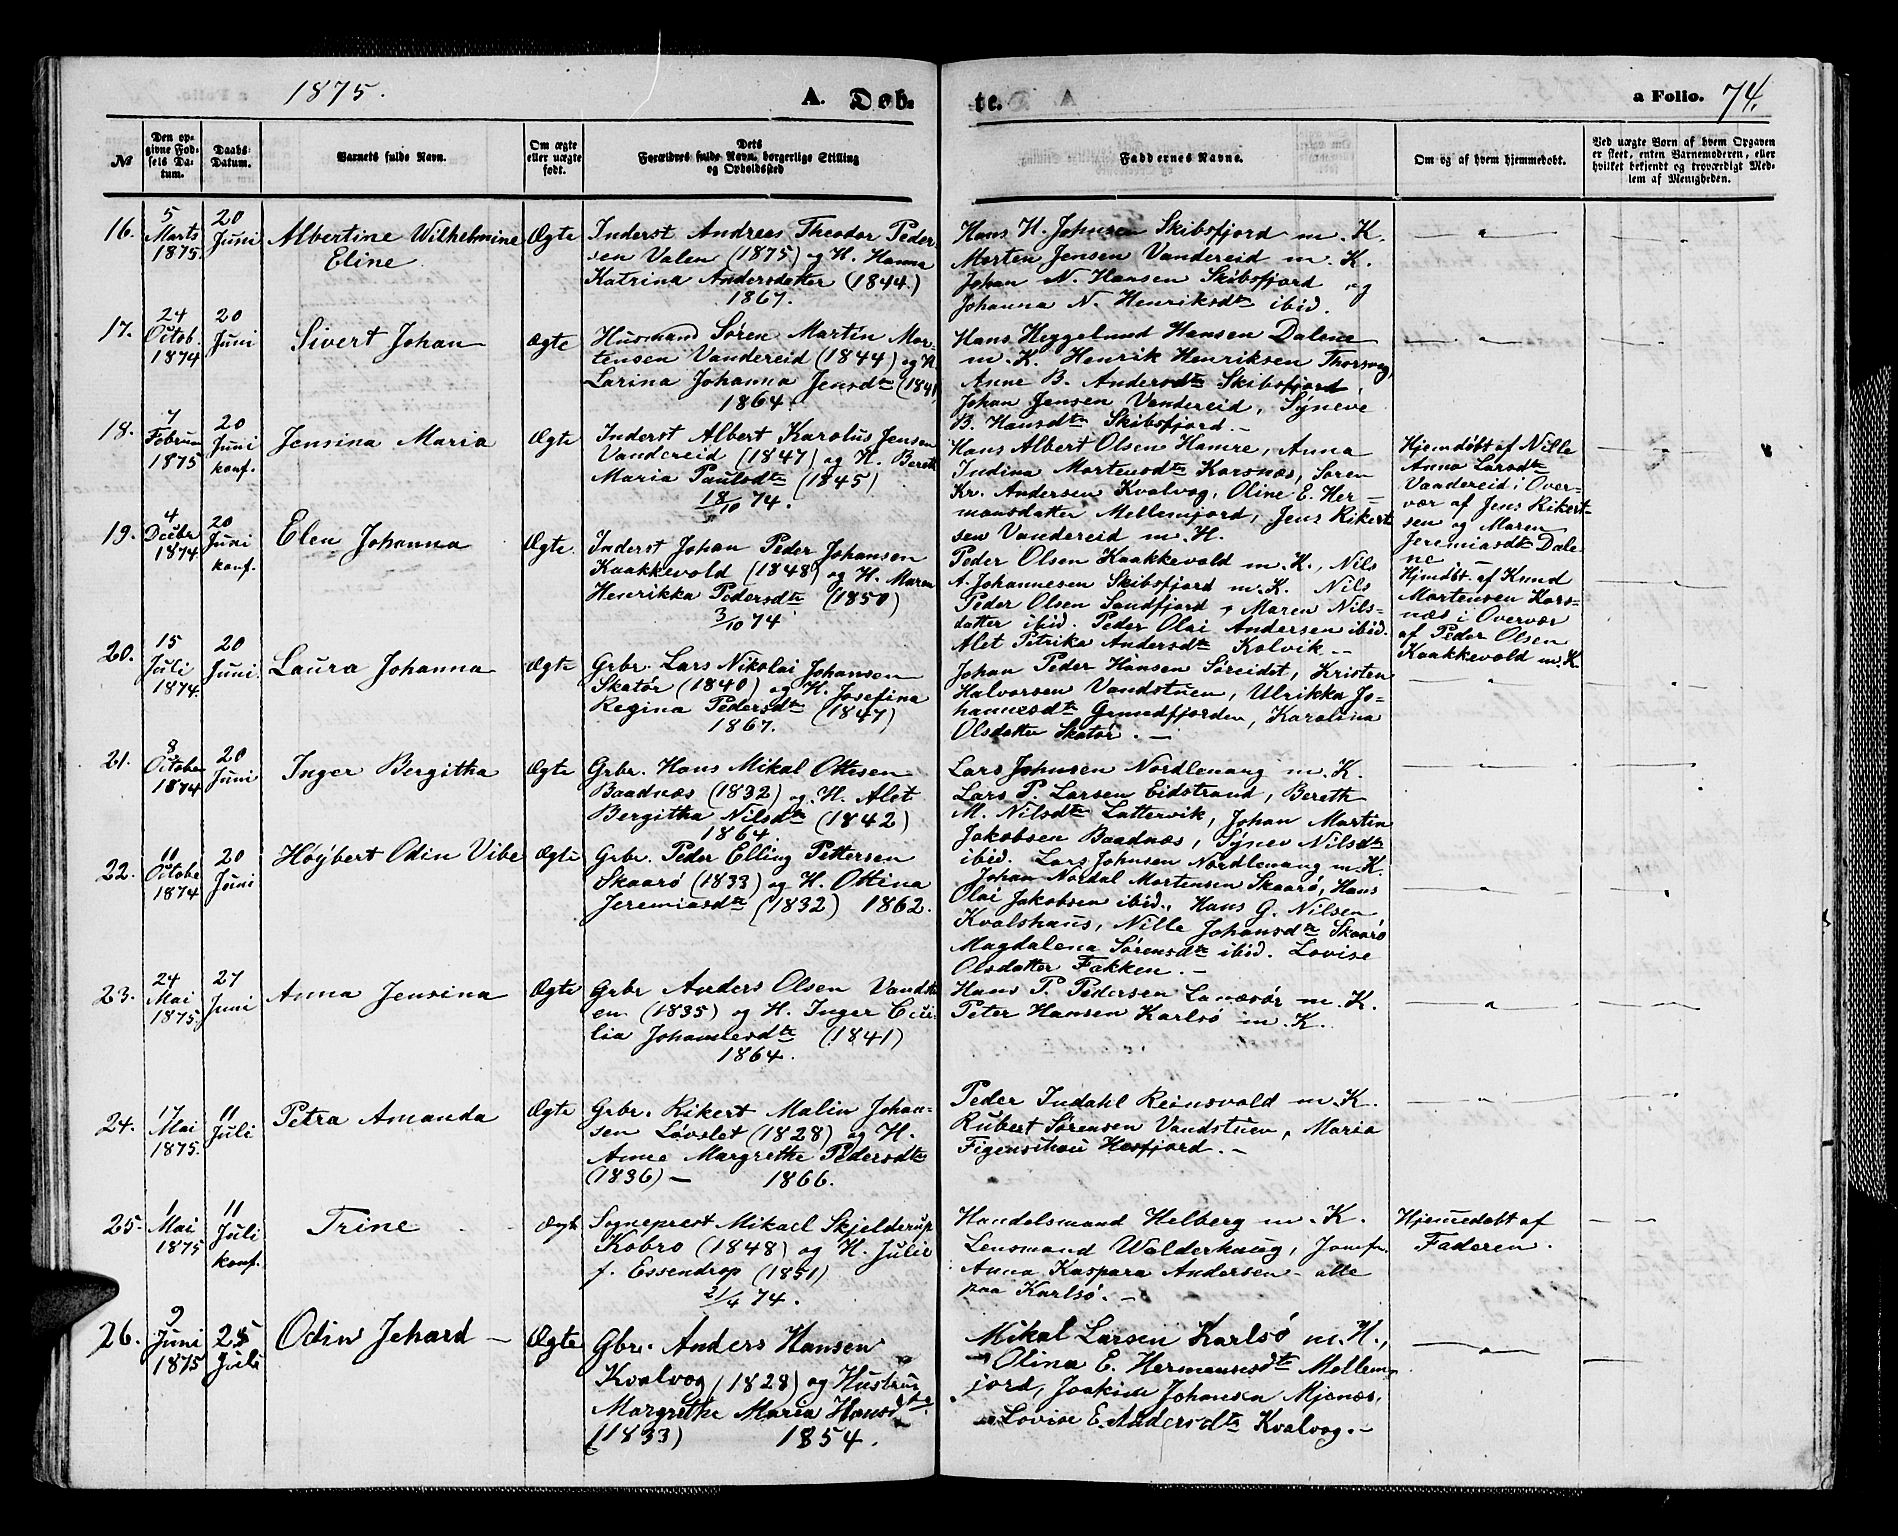 1875.
A. Døb-
te.
a Folio. 74.
№
Den op-
givne Fød-
sels Da-
tum.
Daabs-
Datum.
Barnets fulde Navn.
Om ægte
eller uægte
født.
Dets
Forældres fulde Navn, borgerlige Stilling
og Opholdssted
Faddernes Navne.
Om og af hvem hjemmedøbt.
Ved uægte Børn af hvem Opgaven
er skeet, enten Barnemoderen, eller
hvilket bekjendt og troværdigt Med-
lem af Menigheden.
16.
5
Marts
1875.
20
Juni
Albertine Wilhelmine
Eline
Ægte
Inderst Andreas Theodor Peder-
sen Valen (1875) og H. Hanna
Katrina Andersdatter (1844.)
1867.
Hans H. Johnsen Skibsfjord m. K.
Morten Jensen Vandereid m. K.
Johan N. Hansen Skibsfjord og
Johanna N. Henriksdtr ibid.
17.
24
Octob.
1874
20
Juni
Sivert Johan
Ægte
Husmand Søren Martin Mor-
tensen Vandereid (1844) og H.
Larina Johanna Jensdtr (1841
1864.
Hans Heggelund Hansen Dalene
m. K. Henrik Henriksen Thorsvog,
Anne B. Andersdtr Skibsfjord,
Johan Jensen Vandereid, Syneve
B. Hansdtr Skibsfjord. —
18.
7
Februar
1875
20
Juni
konf.
Jensina Maria
Ægte
Inderst Albert Karolus Jensen
Vandereid (1847) og H. Bereth
Maria Paulsdtr (1845)
18/10 74.
Hans Albert Olsen Hamre, Anna
Indiva Mortensdtr Korsnæs, Søren
Kr. Andersen Kvalvog, Oline E. Her-
mansdatter Mellemjord, Jens Rikert-
sen Vandereid m. H.
Hjemdøbt af Nille
Anna Larsdtr
Vandereid i Over-
vær af Jens Rikert-
sen og Maren
Jeremiasdtr Dale-
ne
19.
4
Decbr
1874
20
Juni
konf.
Elen Johanna
Ægte.
Inderst Johan Peder Johansen
Kaakkevold (1848) og H. Maren
Henrikka Pedersdtr (1850)
3/10 74
Peder Olsen Kaakkevold m. K., Nils
A. Johannesen Skibsfjord m. K. Nils
Peder Olsen Sandfjord, Maren Nils-
datter ibid. Peder Olai Andersen ibid.
Alet Petrika Andersdtr Kolvik —
Hjmdøbt. af Knud
Mortensen Kors-
næs i Overvær
af Peder Olsen
Kaakkevold m. K.
20.
15
Juli
1874.
20
Juni.
Laura Johanna
Ægte
Grbr. Lars Nikolai Johansen
Skatør (1840) og H. Josefina
Regina Pedersdtr (1847)
1867.
Johan Peder Hansen Søreidet, Kristen
Halvorsen Vandstuen, Ulrikka Jo-
hannesdtr Grundfjorden, Karolina
Olsdatter Skatør. —
21.
8
October
1874
20
Juni
Inger Bergitha
Ægte
Grbr. Hans Mikal Ottesen
Baadnæs (1832) og H. Alet
Bergitha Nilsdtr (1842)
1864.
Lars Johnsen Nordlenang m. K.
Lars P. Larsen Eidstrand, Bereth
M. Nilsdtr Lattervik, Johan Martin
Jakobsen Baadnæs, Synev Nilsdtr
ibid. Lars Johnsen Nordlenang m. K.
22.
11
Octobe
1874
20
Juni
Høybert Odin Vibe
Ægte
Grbr. Peder Elling Pettersen
Skaarø (1833) og H. Ottina
Jeremiasdtr (1832) 1862.
Johan Nordal Mortensen Skaarø, Hans
Olai Jakobsen ibid., Hans G. Nilsen
Kvalshaus, Nille Johansdtr Skaarø
Magdalena Sørensdtr ibid. Lovise
Olsdatter Fakken. —
23.
24
Mai
1875.
27
Juni
Anna Jensina
Ægte
Grbr Anders Olsen Vandstu
en (1835) og H. Inger Ceci-
lia Johannesdtr (1841)
1864.
Hans P. Pedersen Lanesør m. K.
Peter Hansen Karlsø m. K.
24.
17
Mai
1875.
11
Juli
Petra Amanda
Ægte
Grbr. Rikert Malin Johan-
sen Løvslet (1828) og H.
Anne Margrethe Pedersdtr
(1836) — 1866.
Peder Indahl Reinsvold m. K.
Rubert Sørensen Vandstuen, Maria
Figenschau Hesfjord. —
25.
1
Mai
1875
11
Juli
konf.
Trine
Ægte
Sogneprest Mikael Skjelderup
Kobro (1848) og H. Julie
f. Essendrop (1851)
21/4 74.
Handelsmand Helberg m. K.
Lensmand Walderhaug, Jomfr.
Anna Kaspara Andersen — alle
paa Karlsø. —
Hjemedøbt af
Faderen.
26.
9
Juni
1875
25
Juli
Odin Jehard —
Ægte
Gbr. Anders Hansen
Kvalvog (1828) og Hustru
Margrethe Maria Hansdtr
(1833) 1854.
Mikal Larsen Karlsø m. H.,
Olina E. Hermansdtr Mellem-
jord, Joakim Johansen Mjønæs,
Lovise E. Andersdtr Kvalvog. —